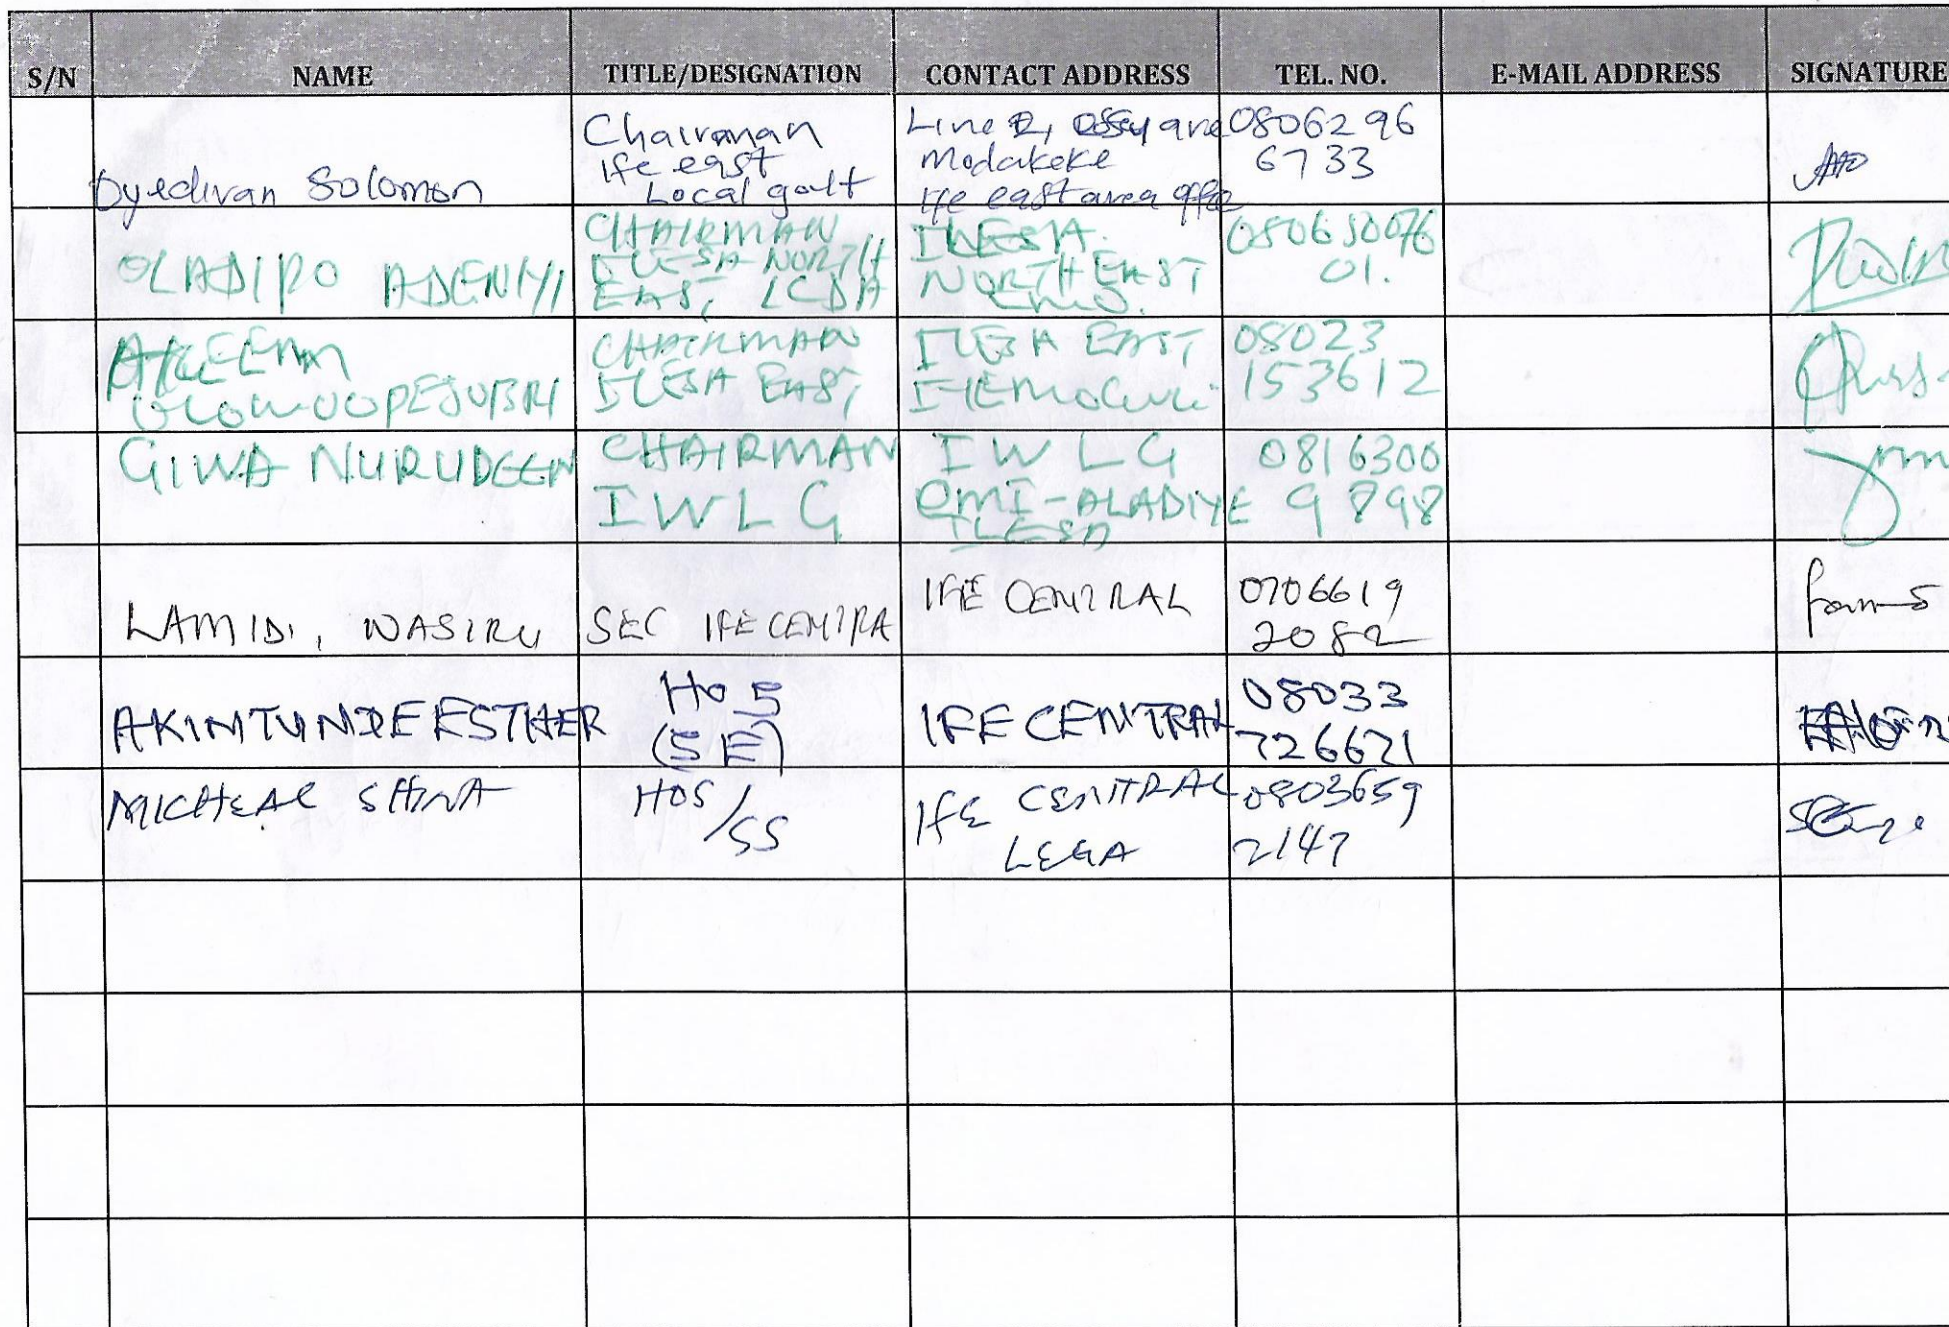 S/N NAME TITLE/DESIGNATION CONTACT ADDRESS TEL. NO. E-MAIL ADDRESS SIGNATURE
Oyedivan Solomon
Chairman
Ife east
Local govt
Line 2,
Modakeke
Ife east area office
0806296
6733
OLADIPO ADENIYI
CHAIRMAN
ILESA NORTH
EAST LCDA
ILESA
NORTH EAST
080650076
01.
AKEEM
CHAIRMAN
ILESA EAST,
ILESA EAST
08023
153612
GIWA NURUDEEN
CHAIRMAN
IWLG
IWLG
OMI-ALADIYE
ILESA
0816300
9898
LAMIDI, WASIRU
SEC IFE CENTRA
IFE CENTRAL
0706619
2082
AKINTUNDE ESTHER
HOS
(SE)
IFE CENTRAL
08033
726621
MICHEAL SHINA
HOS
/SS
IFE CENTRAL
LEGA
0803659
2147